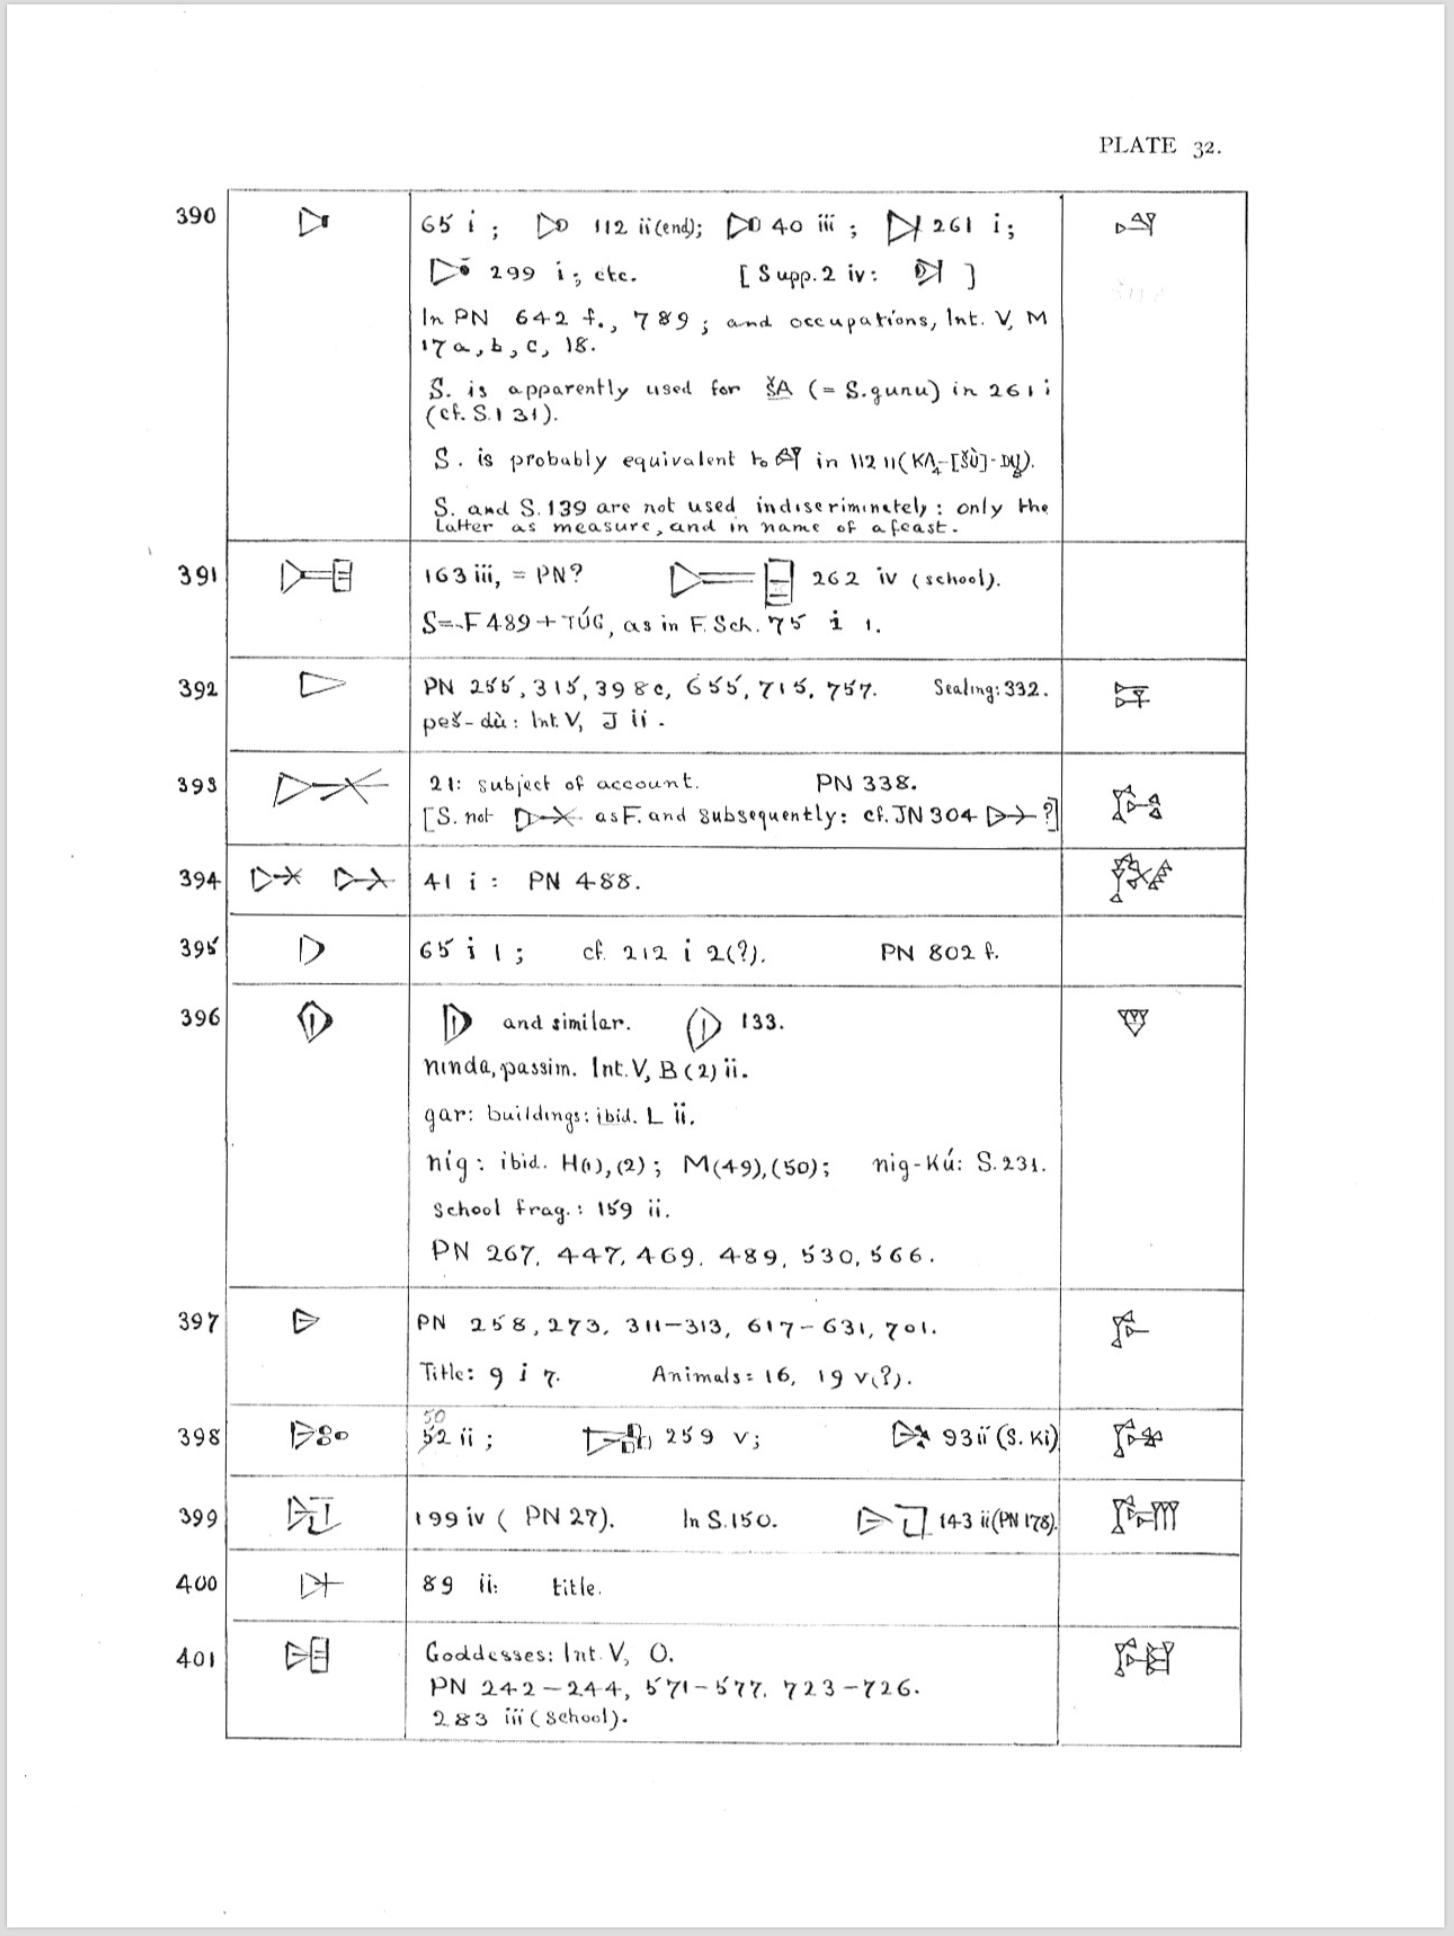 PLATE 32.
390 65 i ; 112 ii (end); 40 iii ; 261 i ;
299 i ; etc. [ Supp. 2 iv : ]
In PN 642 f., 789 ; and occupations, Int. V, M
17 a, b, c, 18.
S. is apparently used for ŠA (= S. gunu) in 261 i
(cf. S. 131).
S. is probably equivalent to in 112 11
S. and S. 139 are not used indiscriminately : only the
latter as measure, and in name of a feast.
391 163 iii, = PN? 262 iv (school).
S = F 489 + TÚG, as in F. Sch. 75 i 1.
392 PN 255, 315, 398 c, 655, 715, 757. Sealing: 332.
peš-dù : Int. V, J ii .
393 21: subject of account. PN 338.
[S. not as F. and subsequently: cf. JN 304 ?]
394 41 i : PN 488.
395 65 i 1 ; cf. 212 i 2(?). PN 802 f.
396 and similar. 133.
ninda, passim. Int. V, B (2) ii.
gar: buildings: ibid. L ii.
nig : ibid. H(1), (2) ; M(49), (50) ; nig-Kú: S. 231.
School frag. : 159 ii.
PN 267, 447, 469, 489, 530, 566.
397 PN 258, 273, 311–313, 617–631, 701.
Title: 9 i 7. Animals: 16, 19 v(?).
50
398 52 ii ; 259 v; 93 ii (S. Ki)
399 199 iv ( PN 27). In S. 150. 143 ii (PN 178).
400 89 ii: title.
401 Goddesses: Int. V, O.
PN 242–244, 571–577, 723–726.
283 iii (School).